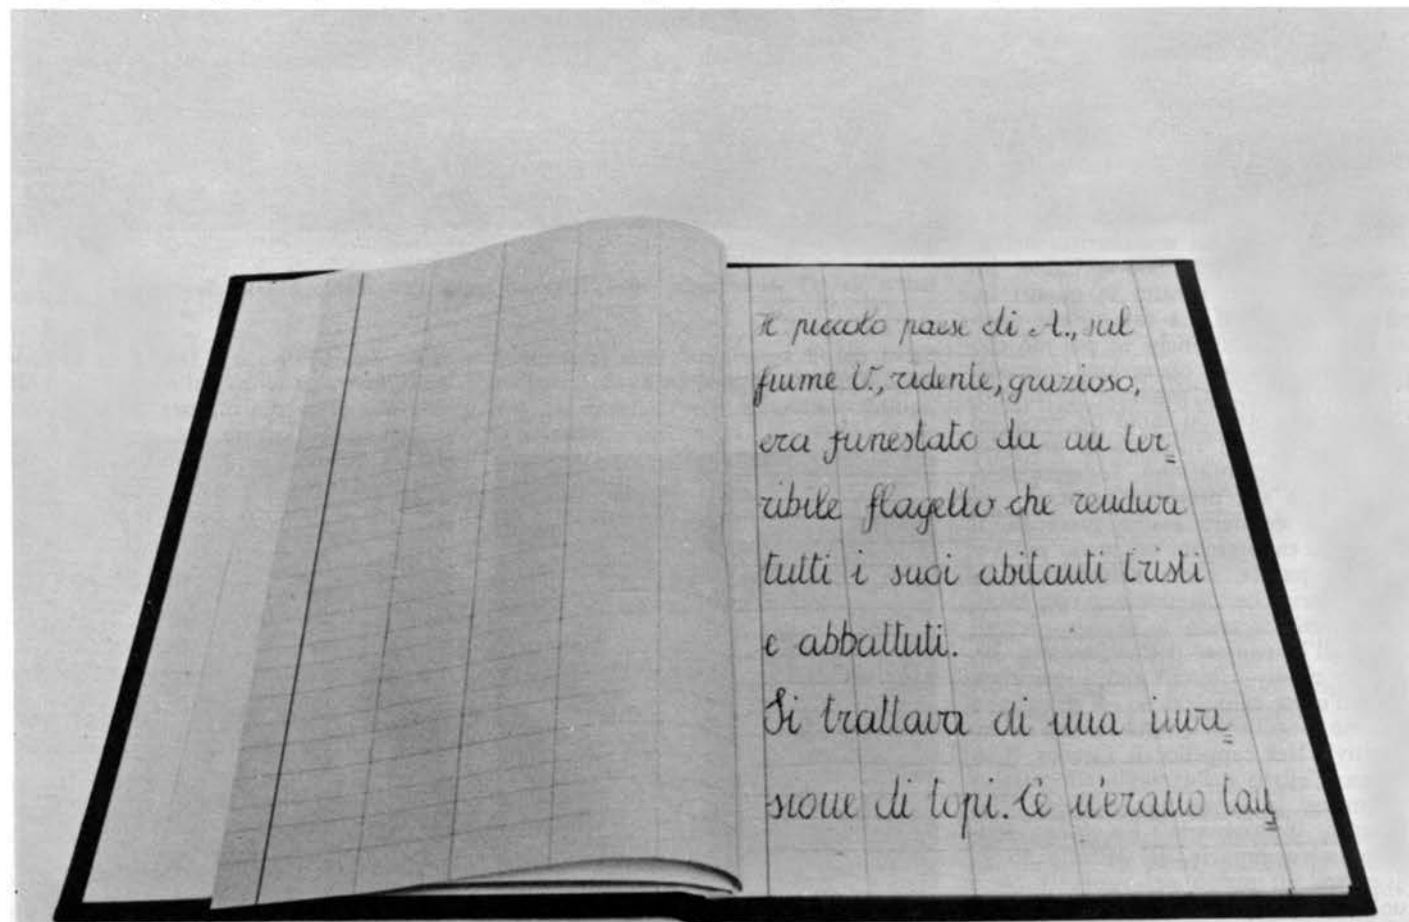 Il piccolo paese di A., sul
fiume U., ridente, grazioso,
era funestato da un ter=
ribile flagello che rendeva
tutti i suoi abitanti tristi
e abbattuti.
Si trattava di una inva=
sione di topi. Ce n'erano tan=